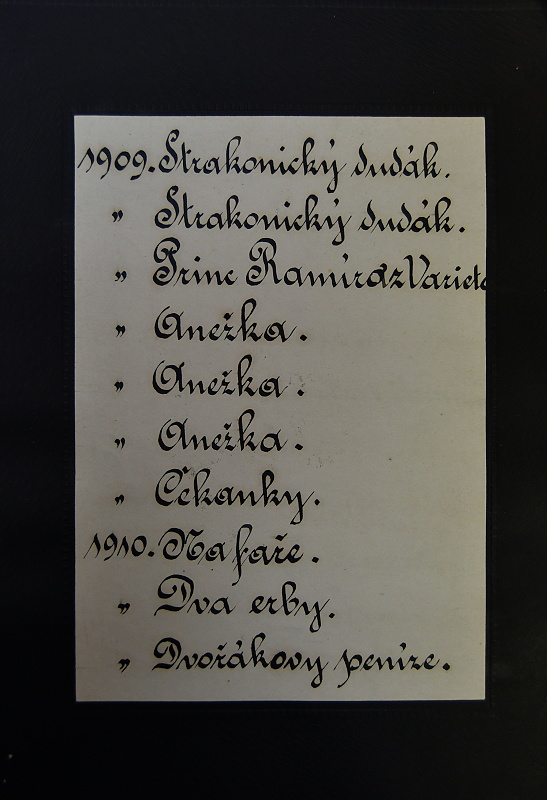 1909. Strakonický dudák.
„ Strakonický dudák.
„ Princ Ramíraz Varieté
„ Anežka.
„ Anežka.
„ Anežka.
„ Čekanky.
1910. Na faře.
„ Dva erby.
„ Dvořákovy peníze.